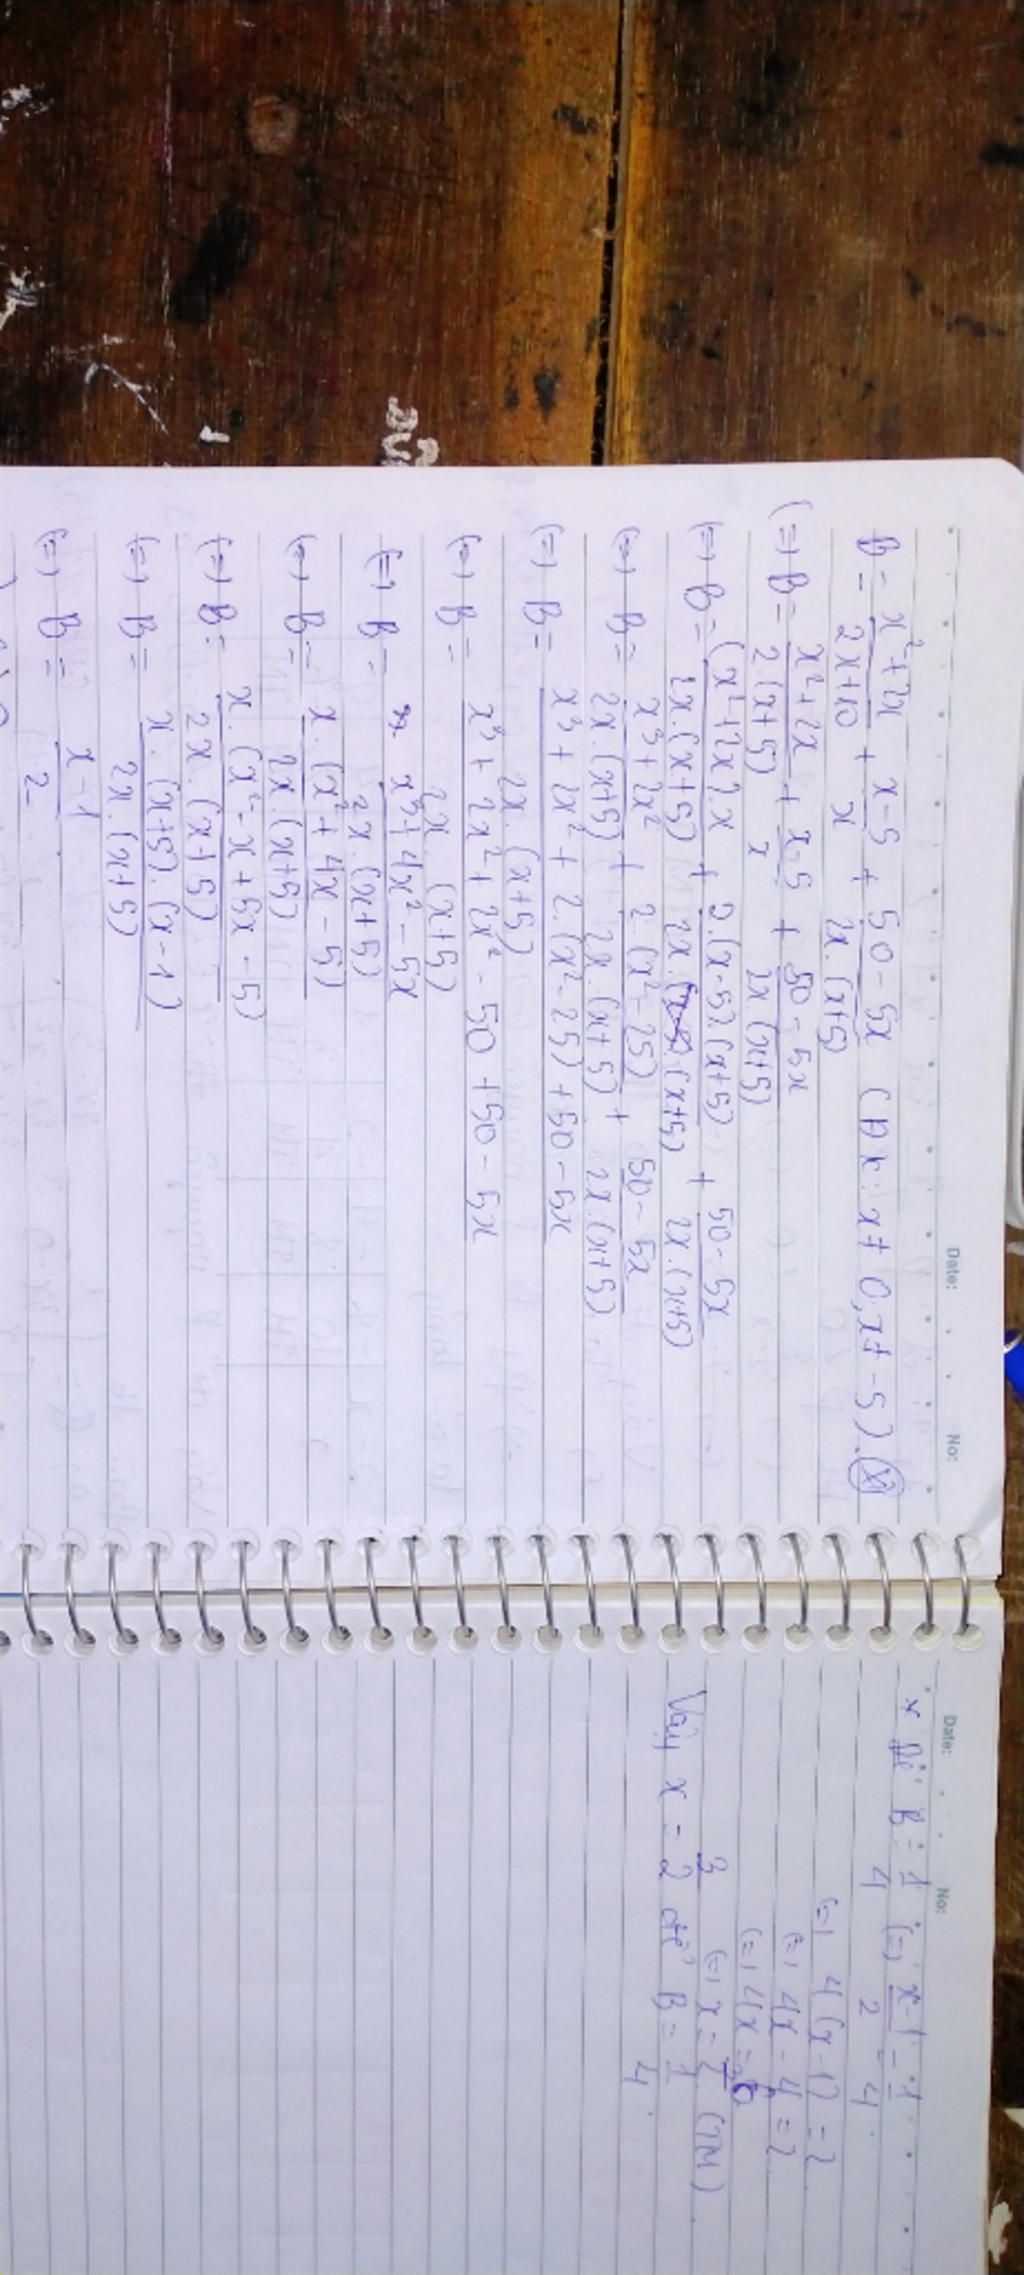 Date: No:
B = \frac{x^2+2x}{2x+10} + \frac{x-5}{x} + \frac{50-5x}{2x.(x+5)} (ĐK: x ≠ 0, x ≠ -5).
(=) B = \frac{x^2+2x}{2.(x+5)} + \frac{x-5}{x} + \frac{50-5x}{2x.(x+5)}
(=) B = \frac{(x^2+2x).x}{2x.(x+5)} + \frac{2.(x-5).(x+5)}{2x.(x+5)} + \frac{50-5x}{2x.(x+5)}
(=) B = \frac{x^3+2x^2}{2x.(x+5)} + \frac{2.(x^2-25)}{2x.(x+5)} + \frac{50-5x}{2x.(x+5)}
(=) B = \frac{x^3+2x^2+2.(x^2-25)+50-5x}{2x.(x+5)}
(=) B = \frac{x^3+2x^2+2x^2-50+50-5x}{2x.(x+5)}
(=) B = \frac{x^3+4x^2-5x}{2x.(x+5)}
(=) B = \frac{x.(x^2+4x-5)}{2x.(x+5)}
(=) B = \frac{x.(x^2-x+5x-5)}{2x.(x+5)}
(=) B = \frac{x.(x+5).(x-1)}{2x.(x+5)}
(=) B = \frac{x-1}{2}
Date: No:
* Để B = \frac{1}{4} (=) \frac{x-1}{2} = \frac{1}{4}
(=) 4(x-1) = 2
(=) 4x-4 = 2
(=) 4x = 6
(=) x = \frac{3}{2} (TM)
Vậy x = \frac{3}{2} để B = \frac{1}{4}.